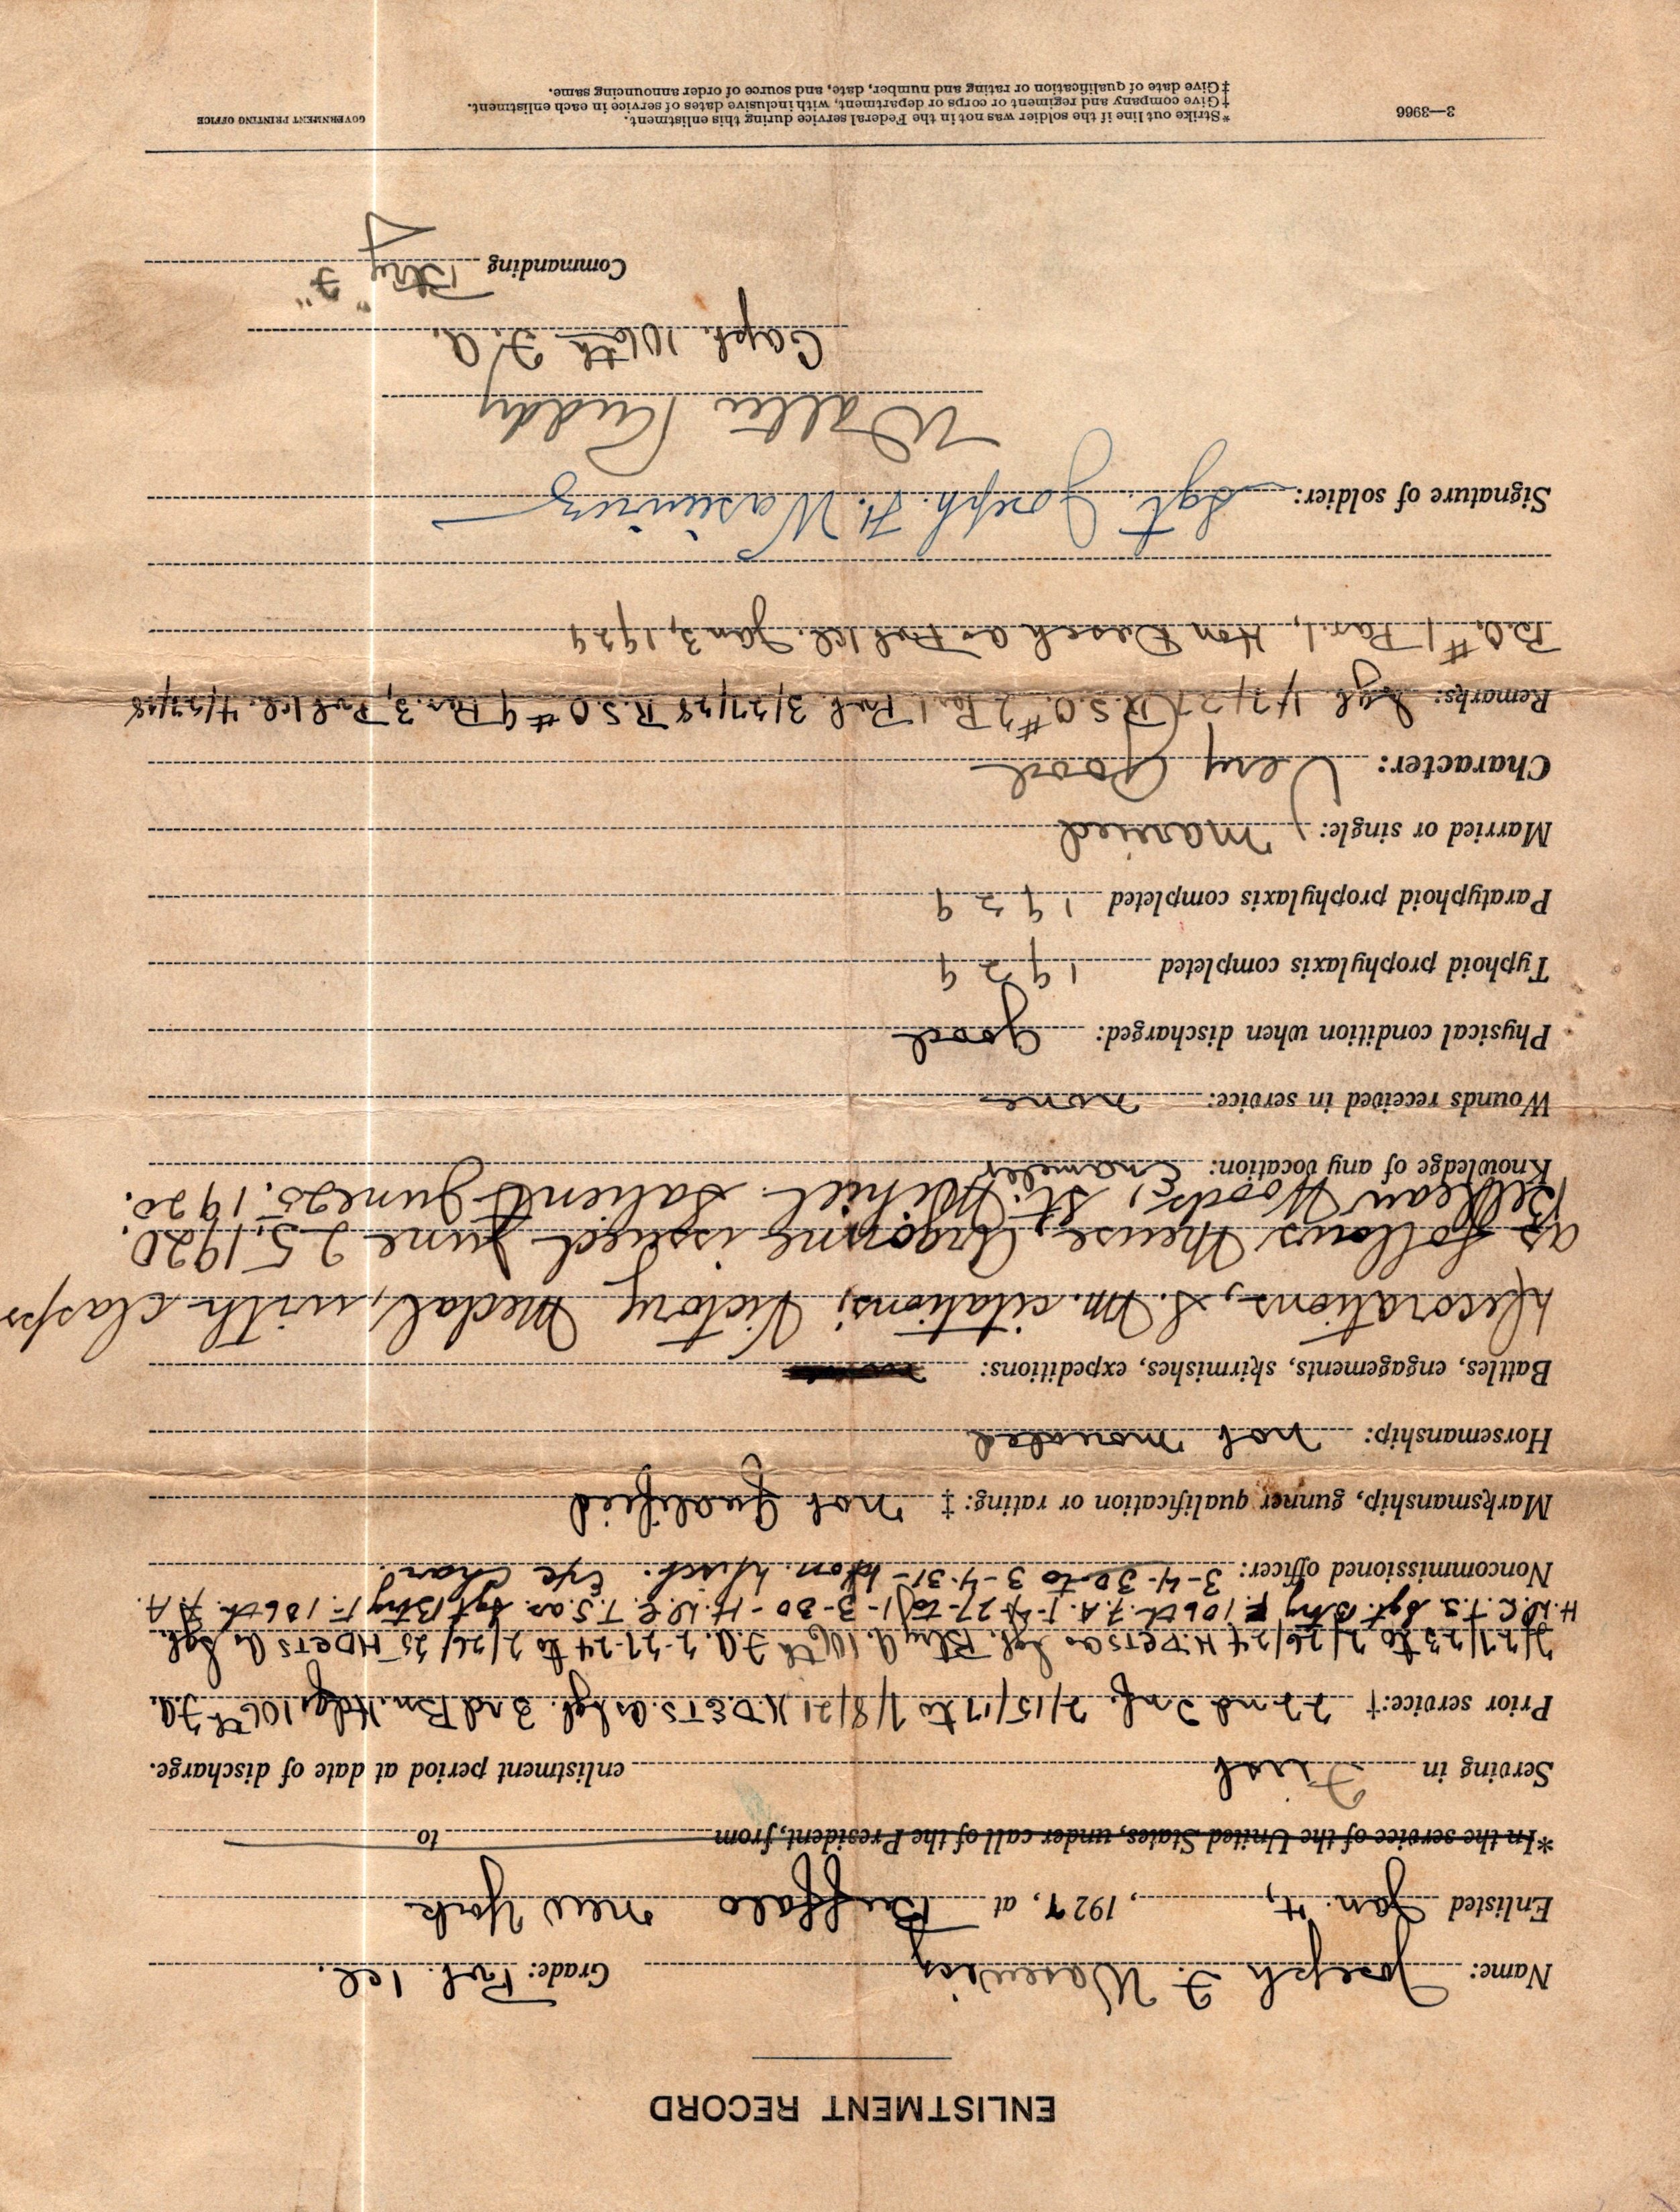 ENLISTMENT RECORD
Name: Joseph F. Wasiewicz Grade: Pvt. 1cl.
Enlisted Jan. 4, , 1927, at Buffalo New York
*In the service of the United States, under call of the President, from to
Serving in First enlistment period at date of discharge.
Prior service:† 22nd Inf. 2/15/17 to 7/8/21 H.D.E.T.S. as Sgt. 2nd Bn. Hdqs 106th F.A.
2/27/23 to 2/26/24 H.DETS as Sgt. Btry A. 106th F.A. 2-27-24 to 2/26/25 HDETS as Sgt.
H.D.E.T.S. Sgt. Btry F. 106th F.A. 1-4-27-to 1-3-30 - H.D.E.T.S. as Sgt Btry F. 106th. F.A.
Noncommissioned officer: 3-4-30 to 3-4-31- Hon. Disch. Exc Char.
Marksmanship, gunner qualification or rating: ‡ not qualified
Horsemanship: not mounted
Battles, engagements, skirmishes, expeditions:
Decorations, S. M. citations; Victory Medal, with clasps
as follows Meuse, Argonne issued June 25, 1920.
Belleau Woods, St. Mihiel Salient June 25, 1920.
Knowledge of any vocation: Enameler
Wounds received in service: none
Physical condition when discharged: Good
Typhoid prophylaxis completed 1929
Paratyphoid prophylaxis completed 1929
Married or single: Married
Character: Very Good
Remarks: Sgt 1/7/27 R.S.O. #2 Par 1 Pvt. 3/27/28 R.S.O #9 Par. 3, Pvt 1cl. 4/23/28
R.O. #1 Par. 1, Hon Disch as Pvt 1cl. Jan 3, 1929
Signature of soldier: Sgt. Joseph. F. Wasiewicz
Walter Kuddy
Capt. 106th F.A.
Commanding Btry "F"
3—3966
*Strike out line if the soldier was not in the Federal service during this enlistment.
†Give company and regiment or corps or department, with inclusive dates of service in each enlistment.
‡Give date of qualification or rating and number, date, and source of order announcing same.
GOVERNMENT PRINTING OFFICE